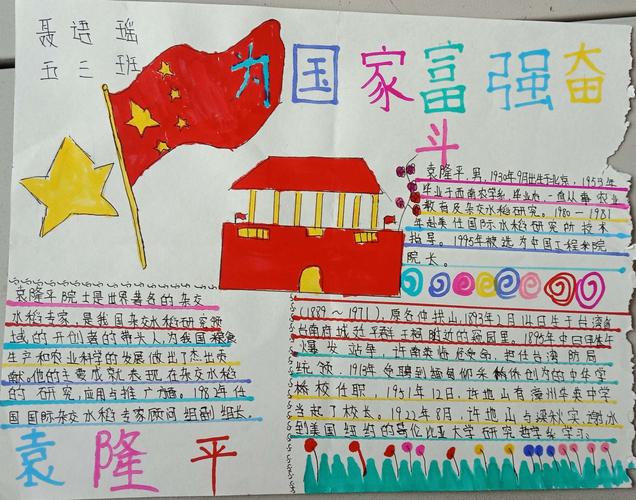 聂语瑶
五三班
为国家富强奋
斗
袁隆平,男,1930年9月出生于北京,1953年
毕业于西南农学院,毕业后,一直从事农业
教育及杂交水稻研究。1980-1981
年赴美任国际水稻研究所技术
指导。1995年被选为中国工程院
院长。
袁隆平院士是世界著名的杂交
水稻专家,是我国杂交水稻研究领
域的开创者的带头人,为我国粮食
生产和农业科学的发展做出了杰出贡
献。他的主要成就表现在杂交水稻
的研究,应用与推广方面。198年任
国国际杂交水稻专家顾问组副组长。
袁隆平
(1889~1971),原名仲拱山,1893年2月14日生于台湾省
台南府城延平郡王祠附近的窥园里。1895年中日甲午
爆发战争,许南英临危受命,担任台湾防局
统领,1913年受聘到缅甸仰
桥校任职,1951年12月,许地山在漳州华英中学
当起了校长。1922年8月,许地山与梁秋实,谢冰
到美国纽约的哥伦比亚大学研究哲学系学习。